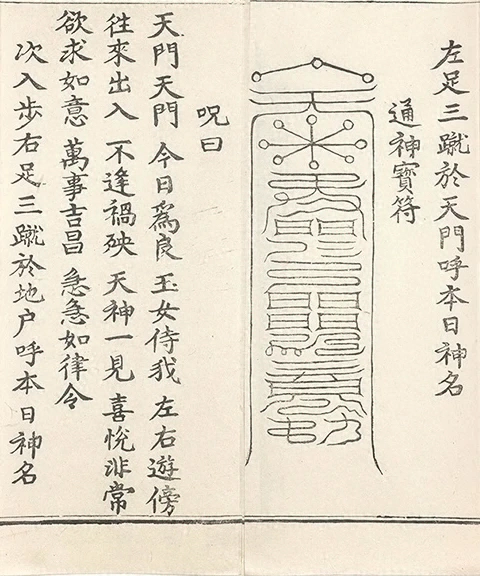 左足三蹴於天門呼本日神名
通神寳符
呪曰
天門天門 今日爲良 玉女侍我 左右遊傍
往來出入 不逢禍殃 天神一見 喜悅非常
欲求如意 萬事吉昌 急急如律令
次入步右足三蹴於地户呼本日神名